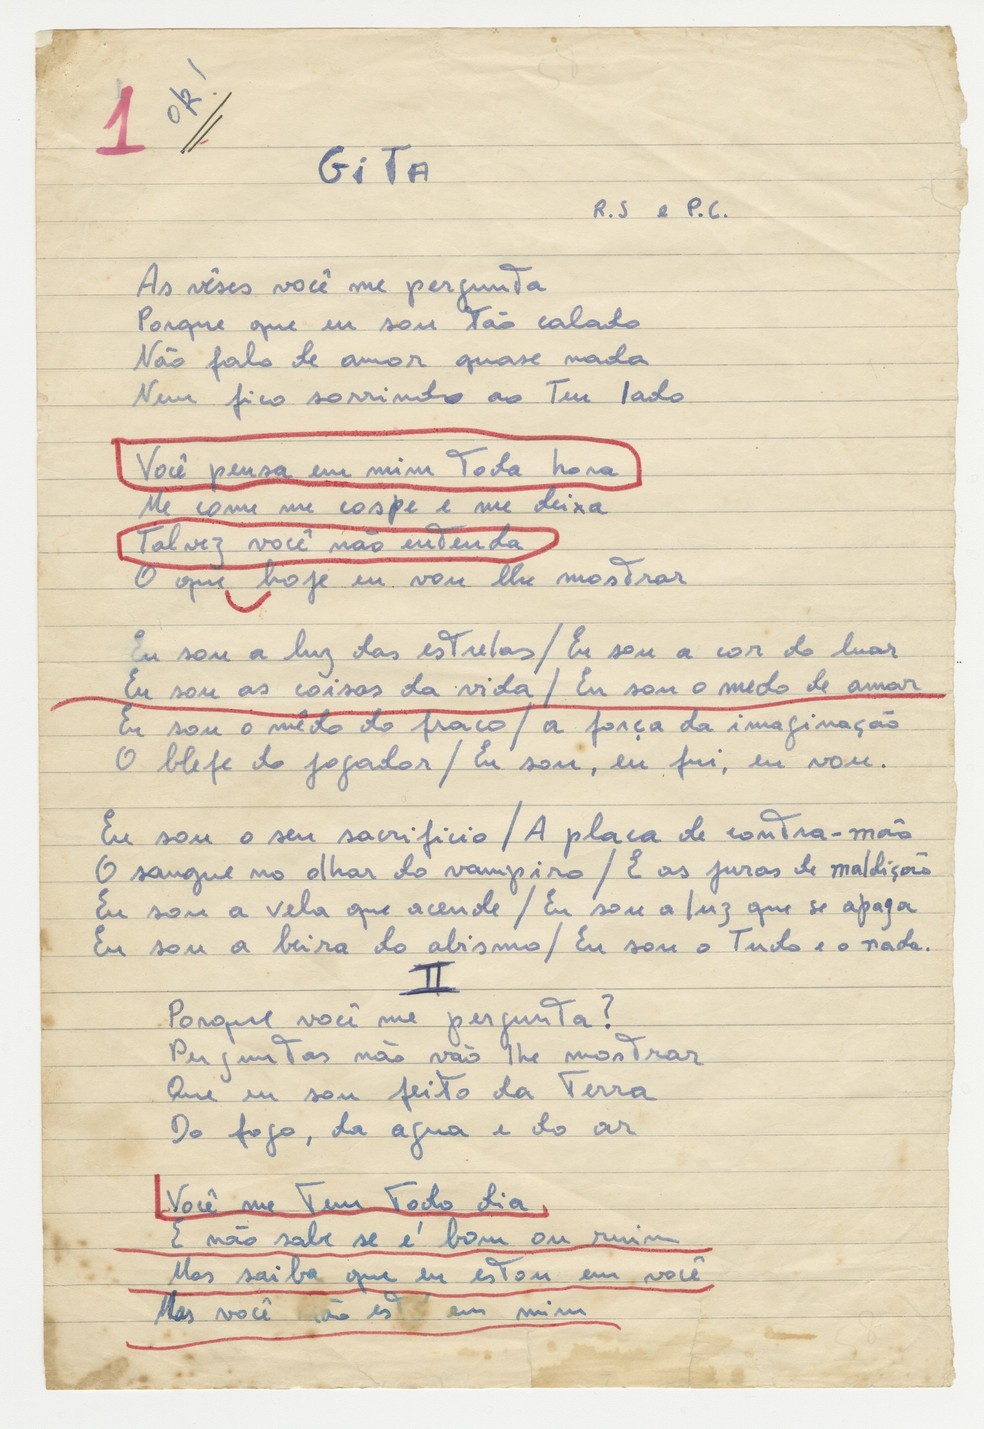 1 OK!
GiTA
R.S e P.C.
As vêses você me pergunta
Porque que eu sou tão calado
Não falo de amor quase nada
Nem fico sorrindo ao teu lado
Você pensa em mim toda hora
Me come me cospe e me deixa
Talvez você não entenda
O que hoje eu vou lhe mostrar
Eu sou a luz das estrelas / Eu sou a cor do luar
Eu sou as coisas da vida / Eu sou o medo de amar
Eu sou o mêdo do fraco / a força da imaginação
O blefe do jogador / Eu sou, eu fui, eu vou.
Eu sou o seu sacrificio / A placa de contra-mão
O sangue no olhar do vampiro / E as juras de maldição
Eu sou a vela que acende / Eu sou a luz que se apaga
Eu sou a beira do abismo / Eu sou o Tudo e o nada.
II
Porque você me pergunta?
Perguntas não vão lhe mostrar
Que eu sou feito da Terra
Do fogo, da agua e do ar
Você me tem todo dia
E não sabe se é bom ou ruim
Mas saiba que eu estou em você
Mas você não está em mim